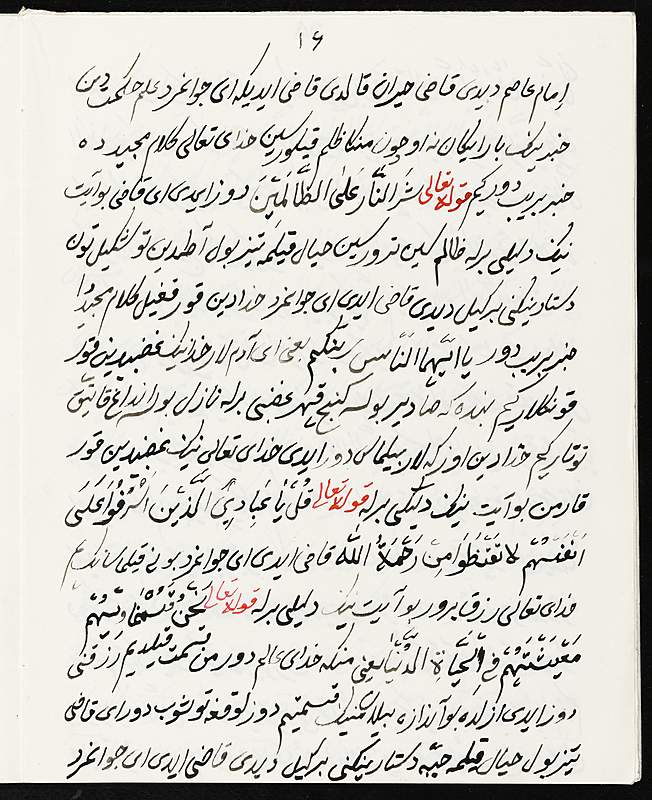 ۱۶
امام عاصم دیدی قاضی حیران قالدی قاضی ایدیکه ای جوانمرد علم حکمت دین
خبرینک بارایکان نه اوچون منکا ظلم قیلورسین خدای تعالی کلام مجید ده
خبر بریب دورکیم قوله تعالی شر النار علی الظالمین دوز ایدی ای قاضی بو آیت
نینک دلیلی برله ظالم سین ترورسین حیال قیلمه تیز بول آطدین توشکیل تون
دستارینکنی برکیل دیدی قاضی ایدی ای جوانمرد خدادین قورقغیل کلام مجیدا
خبر بریب دور یا ایها الناس ربکم یعنی ای آدم لار خداینینک غضبیدین قور
قونکلار کیم بنده که صادیر بولسه کنج قهر غضبی برله نازل بولسه انداغ قاتیق
توتارکیم خدادین اوزکه لار بیلماس دوز ایدی خدای تعالی نینک غضبیدین قور
قارمن بو آیت نینک دلیلی برله قوله تعالی قل یا عبادی الذین اسرفوا علی
انفسهم لا تقنطوا من رحمة الله قاضی ایدی ای جوانمرد بونی قیلماسانک هم
خدای تعالی رزق برور بو آیت نینک دلیلی برله قوله تعالی نحن قسمنا بینهم
معیشتهم فی الحیاة الدنیا یعنی منکه خدای عالم دورمن قسمت قیلدیم رزقنی
دوز ایدی ازلده بو آندازه بیلان مینینک قسمتیم دوزلوقغه توشوب دور ای قاضی
تیز بول حیال قیلمه جبه دستارینکنی برکیل دیدی قاضی ایدی ای جوانمرد